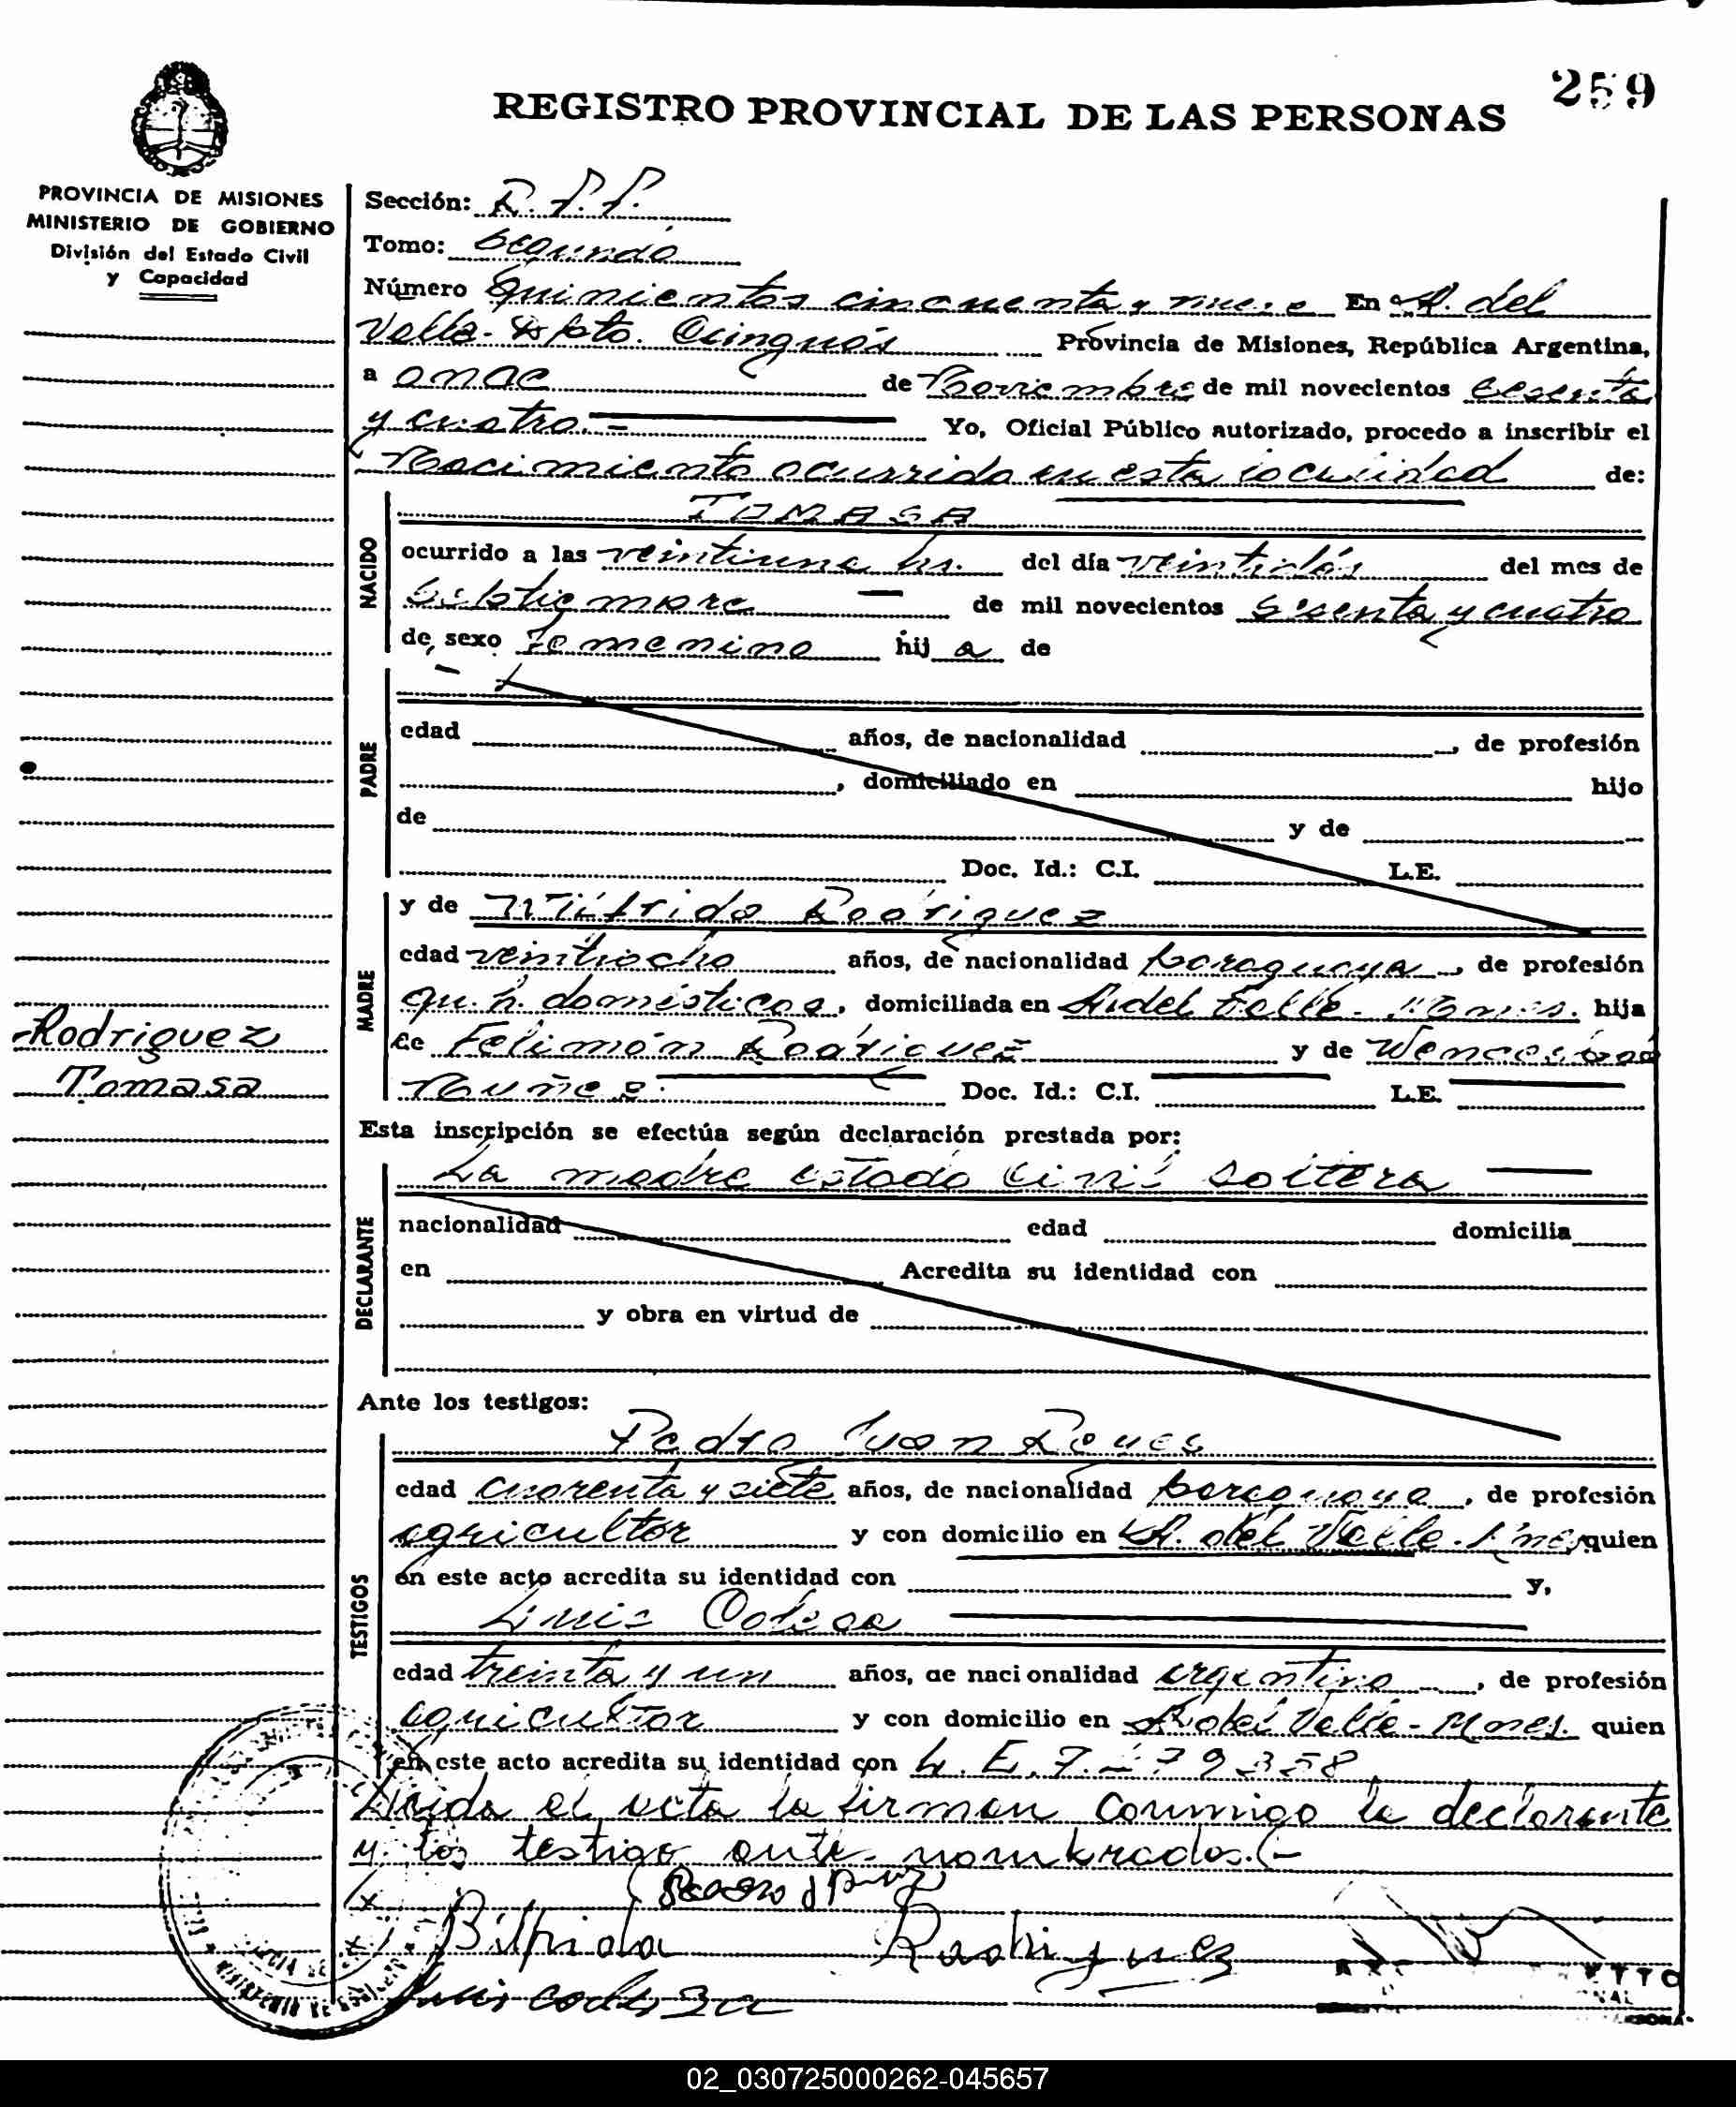 259
REGISTRO PROVINCIAL DE LAS PERSONAS
PROVINCIA DE MISIONES
MINISTERIO DE GOBIERNO
División del Estado Civil
y Capacidad
Sección: R. P. P.
Tomo: Segundo
Número Quinientos cincuenta y nueve En A. del
Valle - Dpto. Cainguás Provincia de Misiones, República Argentina,
a once de Noviembre de mil novecientos sesenta
y cuatro. Yo, Oficial Público autorizado, procedo a inscribir el
Nacimiento ocurrido en esta localidad de:
NACIDO
TOMASA
ocurrido a las veintiuna hs. del día veintidós del mes de
Setiembre de mil novecientos sesenta y cuatro
de sexo femenino hija de
PADRE
edad años, de nacionalidad , de profesión
, domiciliado en hijo
de y de
Doc. Id.: C.I. L.E.
MADRE
y de Wilfrida Rodriguez
edad veintiocho años, de nacionalidad paraguaya , de profesión
qu. h. domésticos, domiciliada en A. del Valle - hija
Rodriguez
de Felimón Rodriguez y de
Tomasa
Nuñez. Doc. Id.: C.I. L.E.
Esta inscripción se efectúa según declaración prestada por:
DECLARANTE
La madre estado civil soltera
nacionalidad edad domicilia
en Acredita su identidad con
y obra en virtud de
Ante los testigos:
TESTIGOS
Pedro Juan Reyes
edad cuarenta y siete años, de nacionalidad paraguaya , de profesión
agricultor y con domicilio en A. del Valle - quien
en este acto acredita su identidad con y,
Luis
edad treinta y un años, de nacionalidad argentino , de profesión
agricultor y con domicilio en A. del Valle - Mnes. quien
en este acto acredita su identidad con L. E. 7.
Leida el acta la firman conmigo la declarante
y los testigo ante nombrados.-
Bilfrida Rodriguez
Luis
02_030725000262-045657